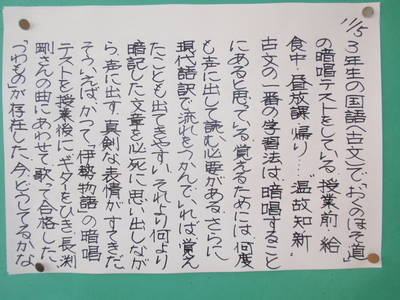 11/5
3年生の国語〈古文〉で「おくのほそ道」
の暗唱テストをしている。授業前・給
食中・昼放課・帰り…。"温故知新"
古文の一番の学習法は、暗唱すること
にあると思っている。覚えるためには、何度
も声に出して読む必要がある。さらに、
現代語訳で流れをつかんでいれば、覚え
たことも出てきやすい。それより何より
暗記した文章を必死に思い出しなが
ら、声に出す、真剣な表情がすてきだ。
そういえば、かつて「伊勢物語」の暗唱
テストを授業後にギターをひき、長渕
剛さんの曲にあわせて歌って合格した、
「つわもの」が存在した。今、どうしてるかな